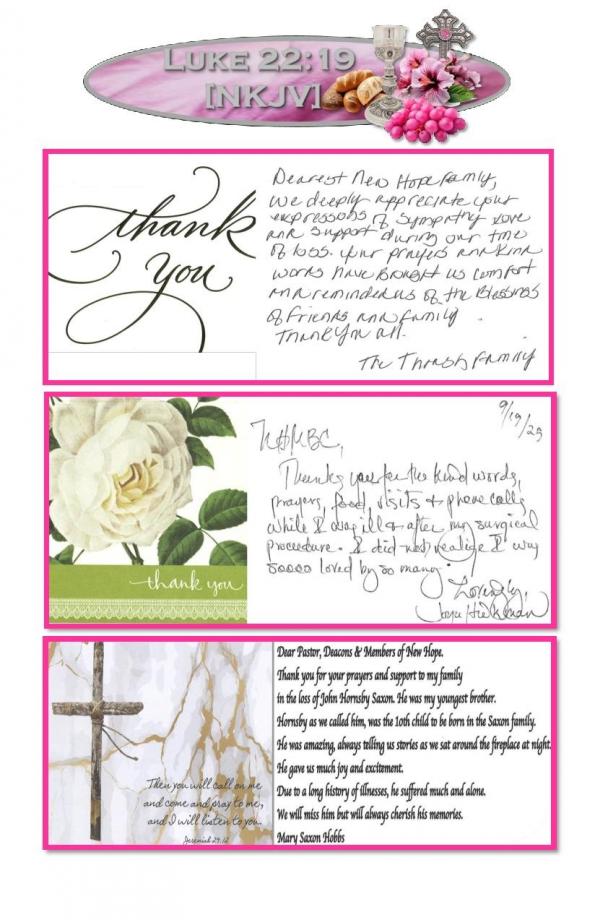 Luke 22:19
[NKJV]
thank
you
Dearest New Hope Family,
We deeply appreciate your
expressions of sympathy love
and support during our time
of loss. Your prayers and kind
works have brought us comfort
and reminded us of the blessings
of friends and family.
Thank you all.
The Thrash Family
thank you
9/19/25
NHMBC,
Thanks you for the kind words,
prayers, food, visits & phone calls
while I was ill & after my surgical
procedure. I did not realize I was
sooooo loved by so many.
Lovingly,
Then you will call on me
and come and pray to me,
and I will listen to you.
Jeremiah 29:12
Dear Pastor, Deacons & Members of New Hope.
Thank you for your prayers and support to my family
in the loss of John Hornsby Saxon. He was my youngest brother.
Hornsby as we called him, was the 10th child to be born in the Saxon family.
He was amazing, always telling us stories as we sat around the fireplace at night.
He gave us much joy and excitement.
Due to a long history of illnesses, he suffered much and alone.
We will miss him but will always cherish his memories.
Mary Saxon Hobbs